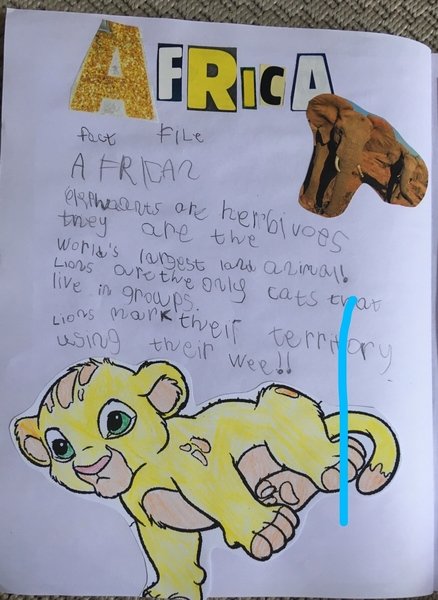 AFRICA
fact FILE
AFRICAN
elephants are herbivoes
they are the
world's largest land animal!
Lions are the only cats that
live in groups.
Lions mark their territory
using their wee!!